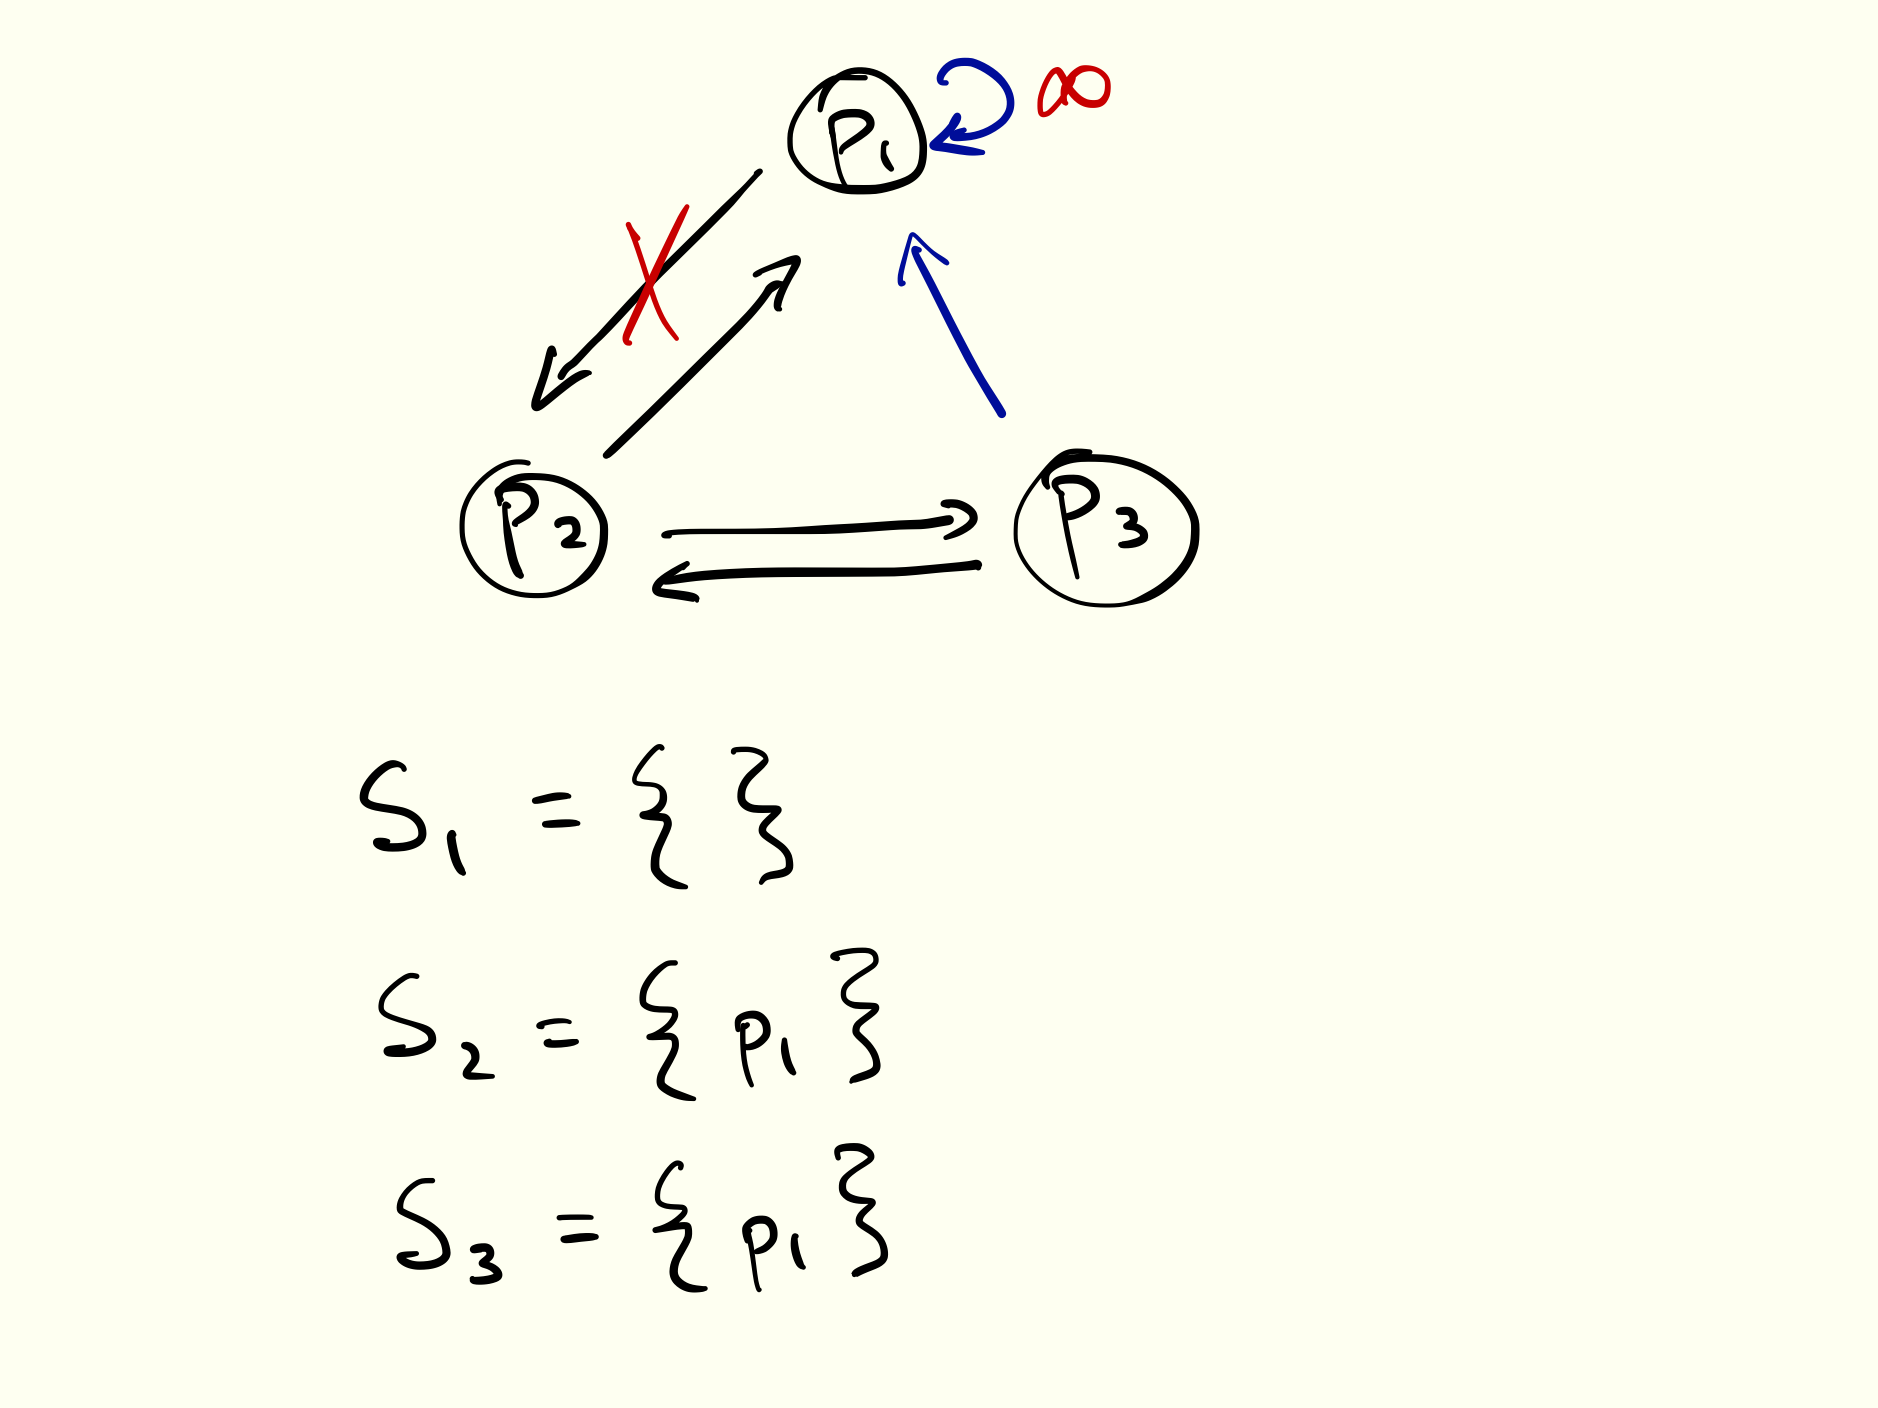 P1 ∞
P2 P3
S1 = { }
S2 = { p1 }
S3 = { p1 }